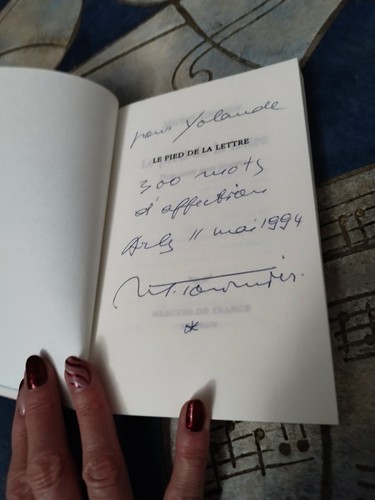 pour Yolande
LE PIED DE LA LETTRE
300 mots
d'affection
Arles 11 mai 1994
M. Tournier.
MERCURE DE FRANCE